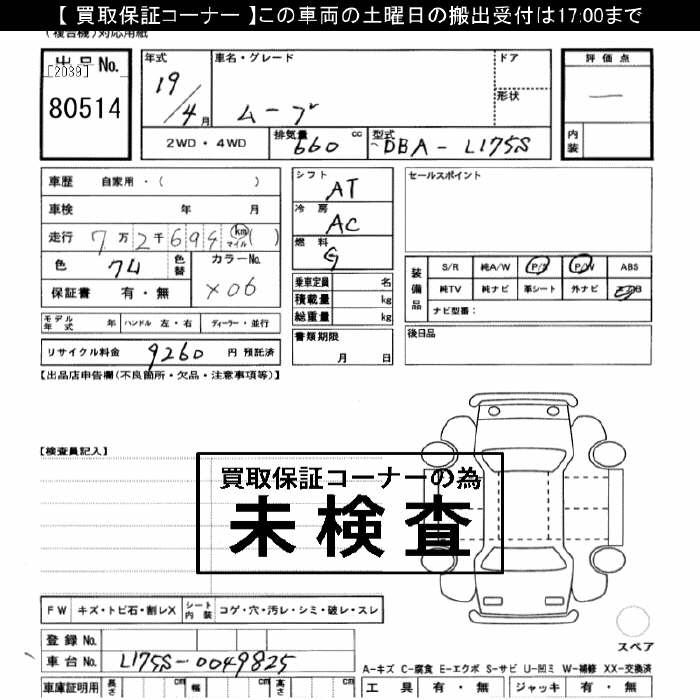 【 買取保証コーナー 】この車両の土曜日の搬出受付は17:00まで
(複合機)対応用紙
出品No.
[2039]
80514
年式
19/4月
車名・グレード
ムーブ
ドア
形状
評価点
一
内装
2WD・4WD
排気量
660 cc
型式
DBA-L175S
車歴 自家用・( )
車検 年 月
走行 7万2千694 km マイル ( )
色 クム 色替
カラーNo.
X06
保証書 有・無
モデル年式 年 ハンドル 左・右 ディーラー・並行
リサイクル料金 9260 円 預託済
シフト AT
冷房 AC
燃料 G
乗車定員 名
積載量 kg
総重量 kg
書類期限
月 日
セールスポイント
装備品
S/R 純A/W P/S P/W ABS
純TV 純ナビ 革シート 外ナビ
ナビ型番:
後日品
【出品店申告欄(不良箇所・欠品・注意事項等)】
【検査員記入】
買取保証コーナーの為
未検査
FW キズ・トビ石・割レX シート内装 コゲ・穴・汚レ・シミ・破レ・スレ
スペア
登録No.
車台No. L175S-0049825
A-キズ C-腐食 E-エクボ S-サビ U-凹ミ W-補修 XX-交換済
車庫証明用 長さ cm 幅 cm 高さ cm
工具 有・無 ジャッキ 有・無